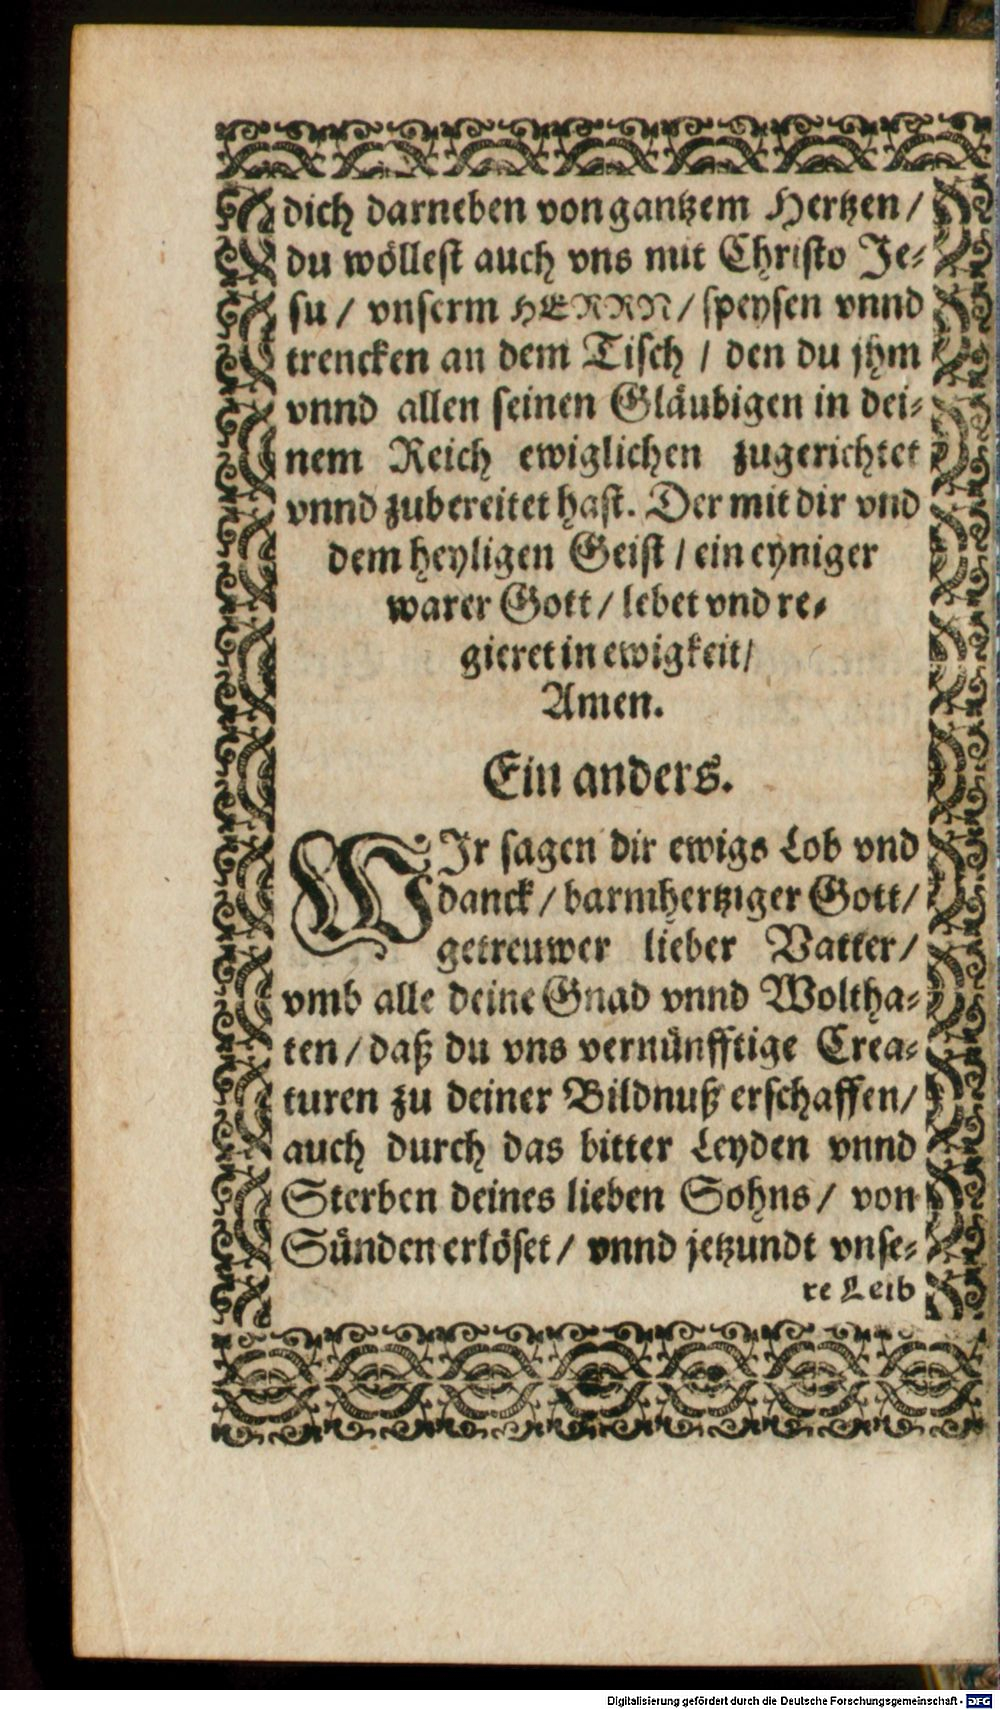 dich darneben von gantzem Hertzen /
du wöllest auch vns mit Christo Je-
su / vnserm HERRN / speysen vnnd
trencken an dem Tisch / den du jhm
vnnd allen seinen Gläubigen in dei-
nem Reich ewiglichen zugerichtet
vnnd zubereitet hast. Der mit dir vnd
dem heyligen Geist / ein eyniger
warer Gott / lebet vnd re-
gieret in ewigkeit /
Amen.
Ein anders.
WJr sagen dir ewigs Lob vnd
danck / barmhertziger Gott /
getreuwer lieber Vatter /
vmb alle deine Gnad vnnd Woltha-
ten / daß du vns vernünfftige Crea-
turen zu deiner Bildnuß erschaffen /
auch durch das bitter Leyden vnnd
Sterben deines lieben Sohns / von
Sünden erlöset / vnnd jetzundt vnse-
re Leib
Digitalisierung gefördert durch die Deutsche Forschungsgemeinschaft - DFG